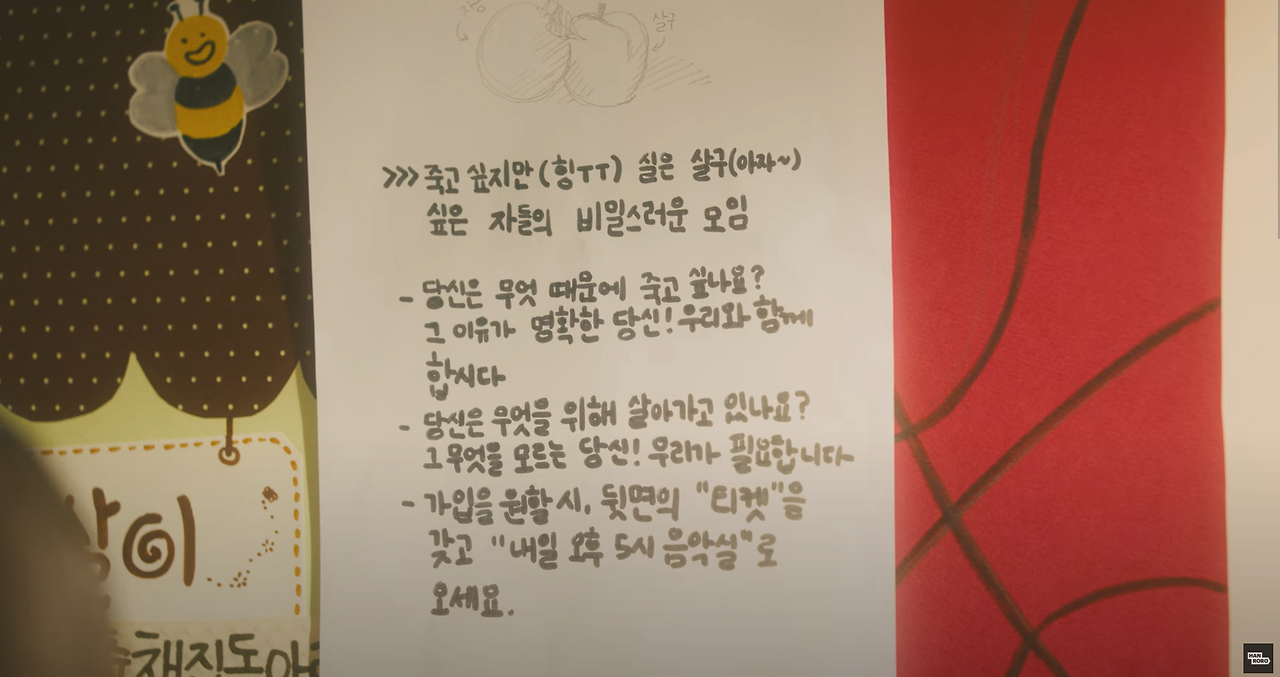 살구
>>> 죽고 싶지만(힝ㅜㅜ) 실은 살구(아자~)
싶은 자들의 비밀스러운 모임
- 당신은 무엇 때문에 죽고 싶나요?
그 이유가 명확한 당신! 우리와 함께
합시다
- 당신은 무엇을 위해 살아가고 있나요?
그 무엇을 모르는 당신! 우리가 필요합니다
- 가입을 원할 시, 뒷면의 "티켓"을
갖고 "내일 오후 5시 음악실"로
오세요.
이
채진도
HAN
RORO